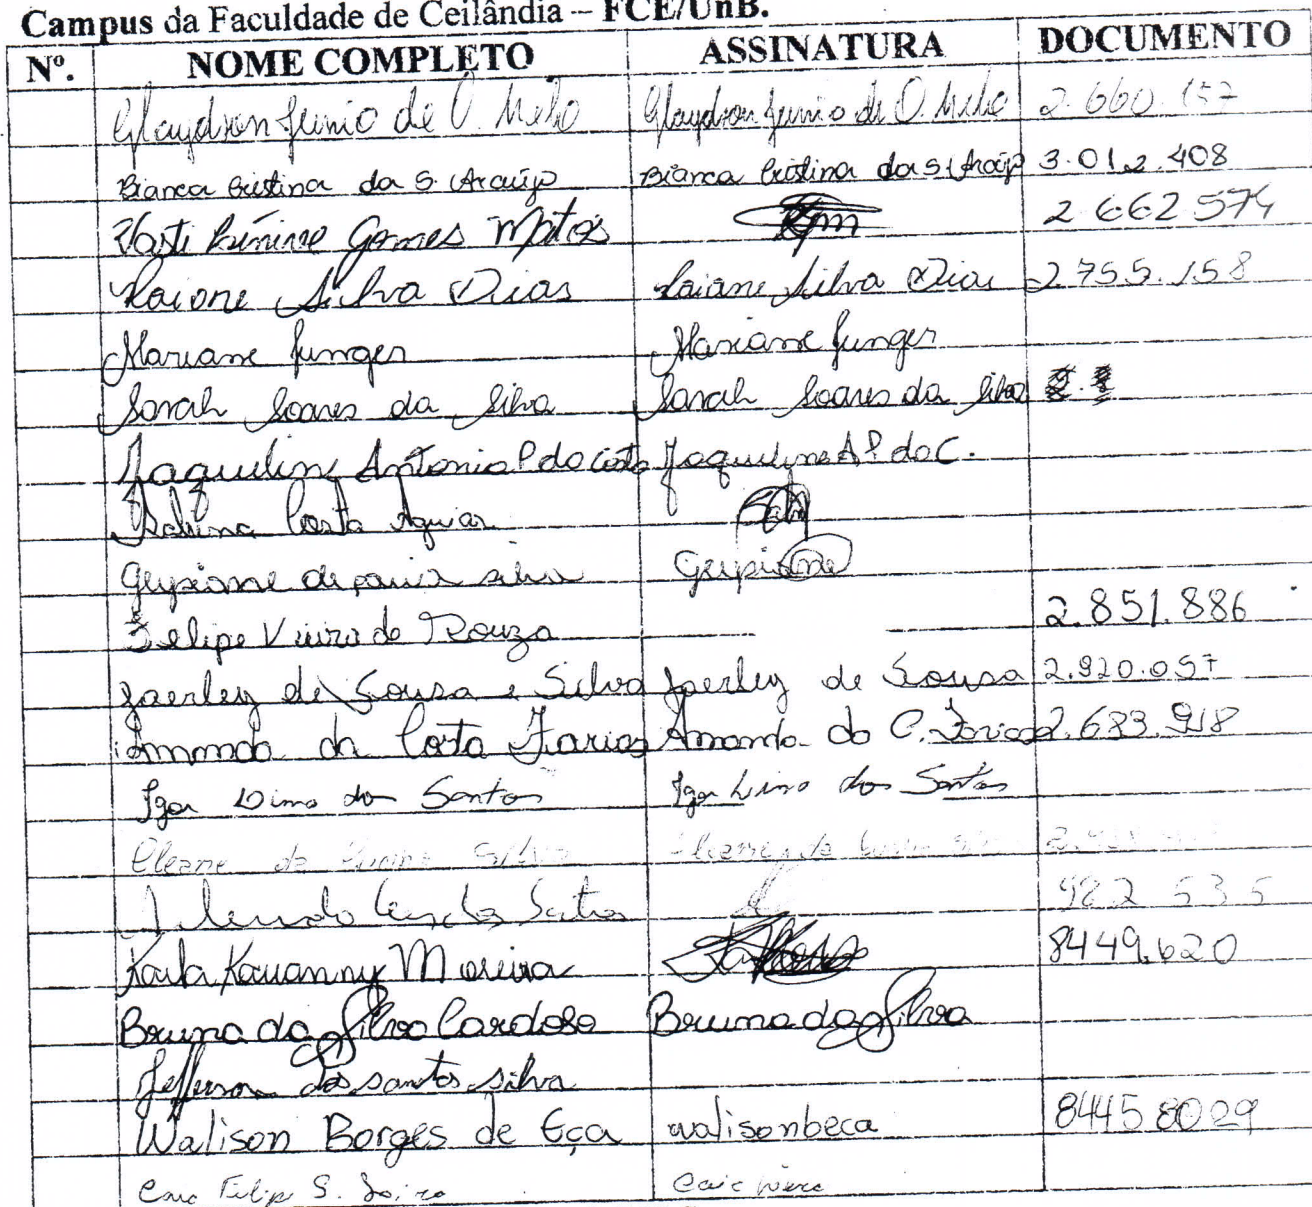 Campus da Faculdade de Ceilândia – FCE/UnB.
Nº. NOME COMPLETO ASSINATURA DOCUMENTO
Glaydson Junio de O. Melo Glaydson Junio de O. Melo 2.660.157
Bianca Cristina da S. Araújo Bianca Cristina da S. Araújo 3.012.408
Gomes Matos 2.662.574
Raiane Silva Dias Raiane Silva Dias 2.755.158
Mariane Junger Mariane Junger
Sarah Soares da Silva Sarah Soares da Silva
Jaqueline Antonia P. da Costa Jaqueline A.P. da C.
Costa Aguiar
Geysiane de paiva silva Geysiane
Felipe Vieira de Souza 2.851.886
Jaerley de Sousa e Silva Jaerley de Sousa 2.920.057
Amanda da Costa Farias Amanda da C. Farias 2.683.918
Igor Lima dos Santos Igor Lima dos Santos
Silva
982 535
Karla Kauanny Moreira 8449.620
Bruna da Silva Cardoso Bruna da Silva
Jefferson dos santos silva
Walison Borges de Eça walisonbeca 84458029
Felipe S.